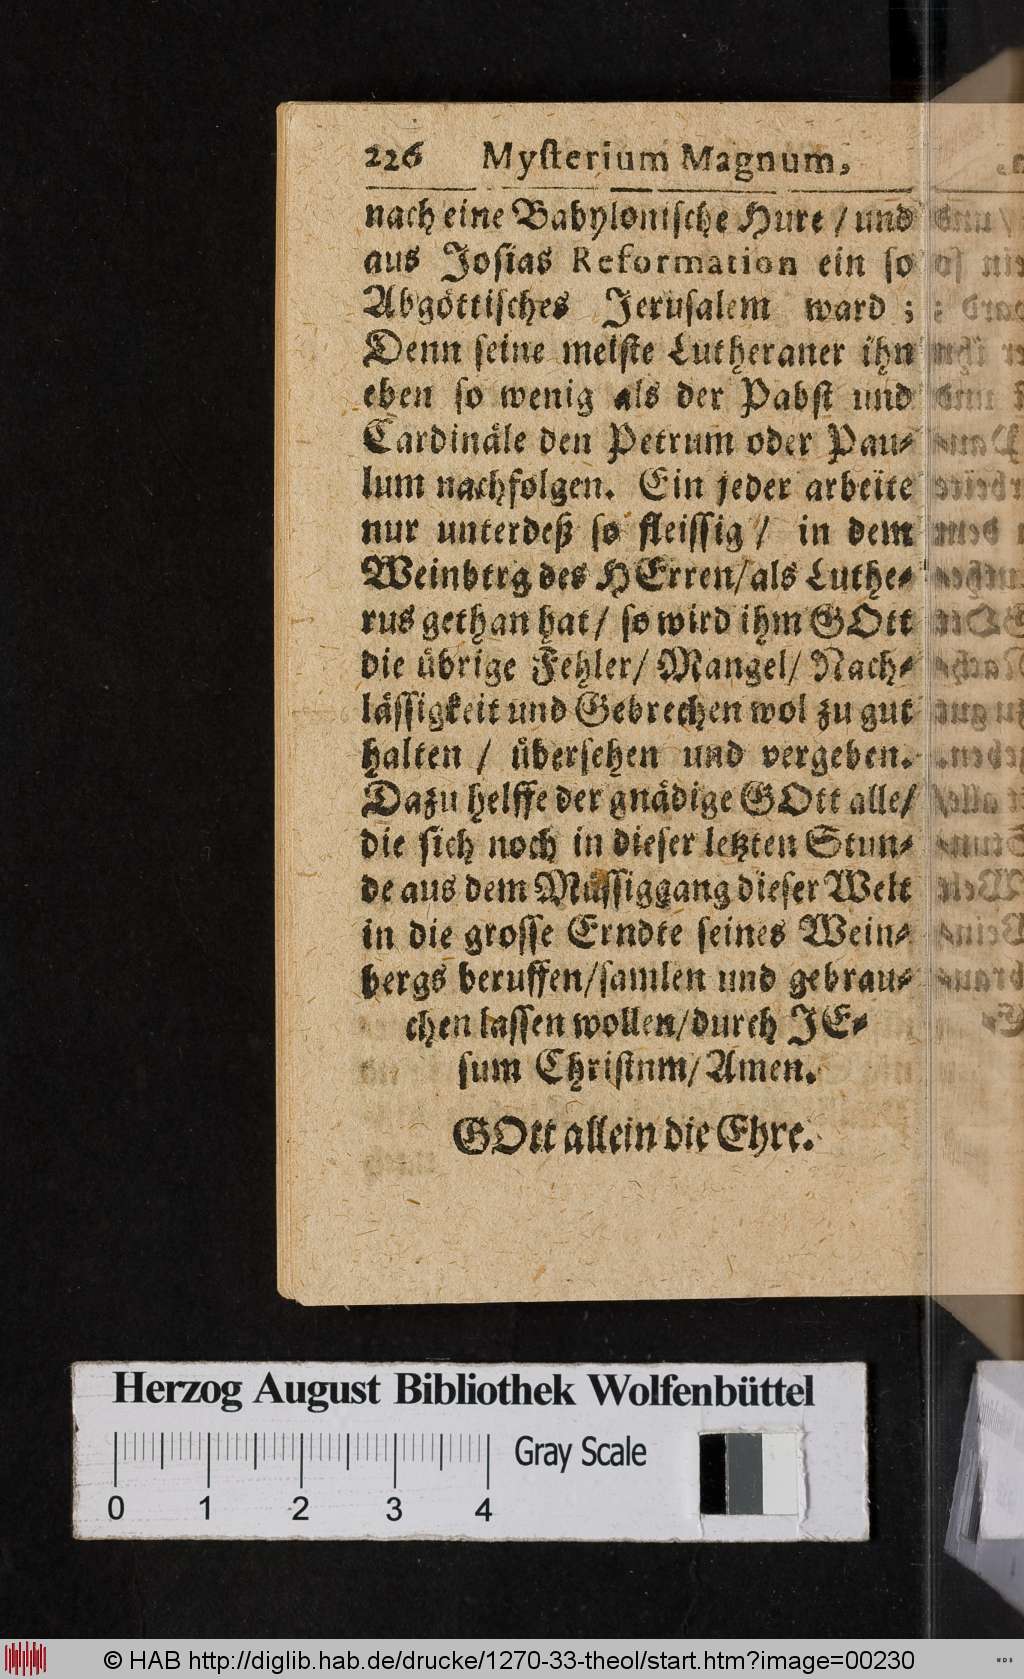 226 Mysterium Magnum,
nach eine Babylonische Hure / und
aus Josias Reformation ein so
Abgöttisches Jerusalem ward ;
Denn seine meiste Lutheraner ihn
eben so wenig als der Pabst und
Cardinäle den Petrum oder Pau-
lum nachfolgen. Ein jeder arbeite
nur unterdeß so fleissig / in dem
Weinberg des HErren/als Luthe-
rus gethan hat / so wird ihm GOtt
die übrige Fehler/ Mangel/ Nach-
lässigkeit und Gebrechen wol zu gut
halten / übersehen und vergeben.
Dazu helffe der gnädige GOtt alle/
die sich noch in dieser letzten Stun-
de aus dem Müssiggang dieser Welt
in die grosse Erndte seines Wein-
bergs beruffen/samlen und gebrau-
chen lassen wollen/durch JE-
sum Christum/Amen.
GOtt allein die Ehre.
Herzog August Bibliothek Wolfenbüttel
Gray Scale
0 1 2 3 4
© HAB http://diglib.hab.de/drucke/1270-33-theol/start.htm?image=00230